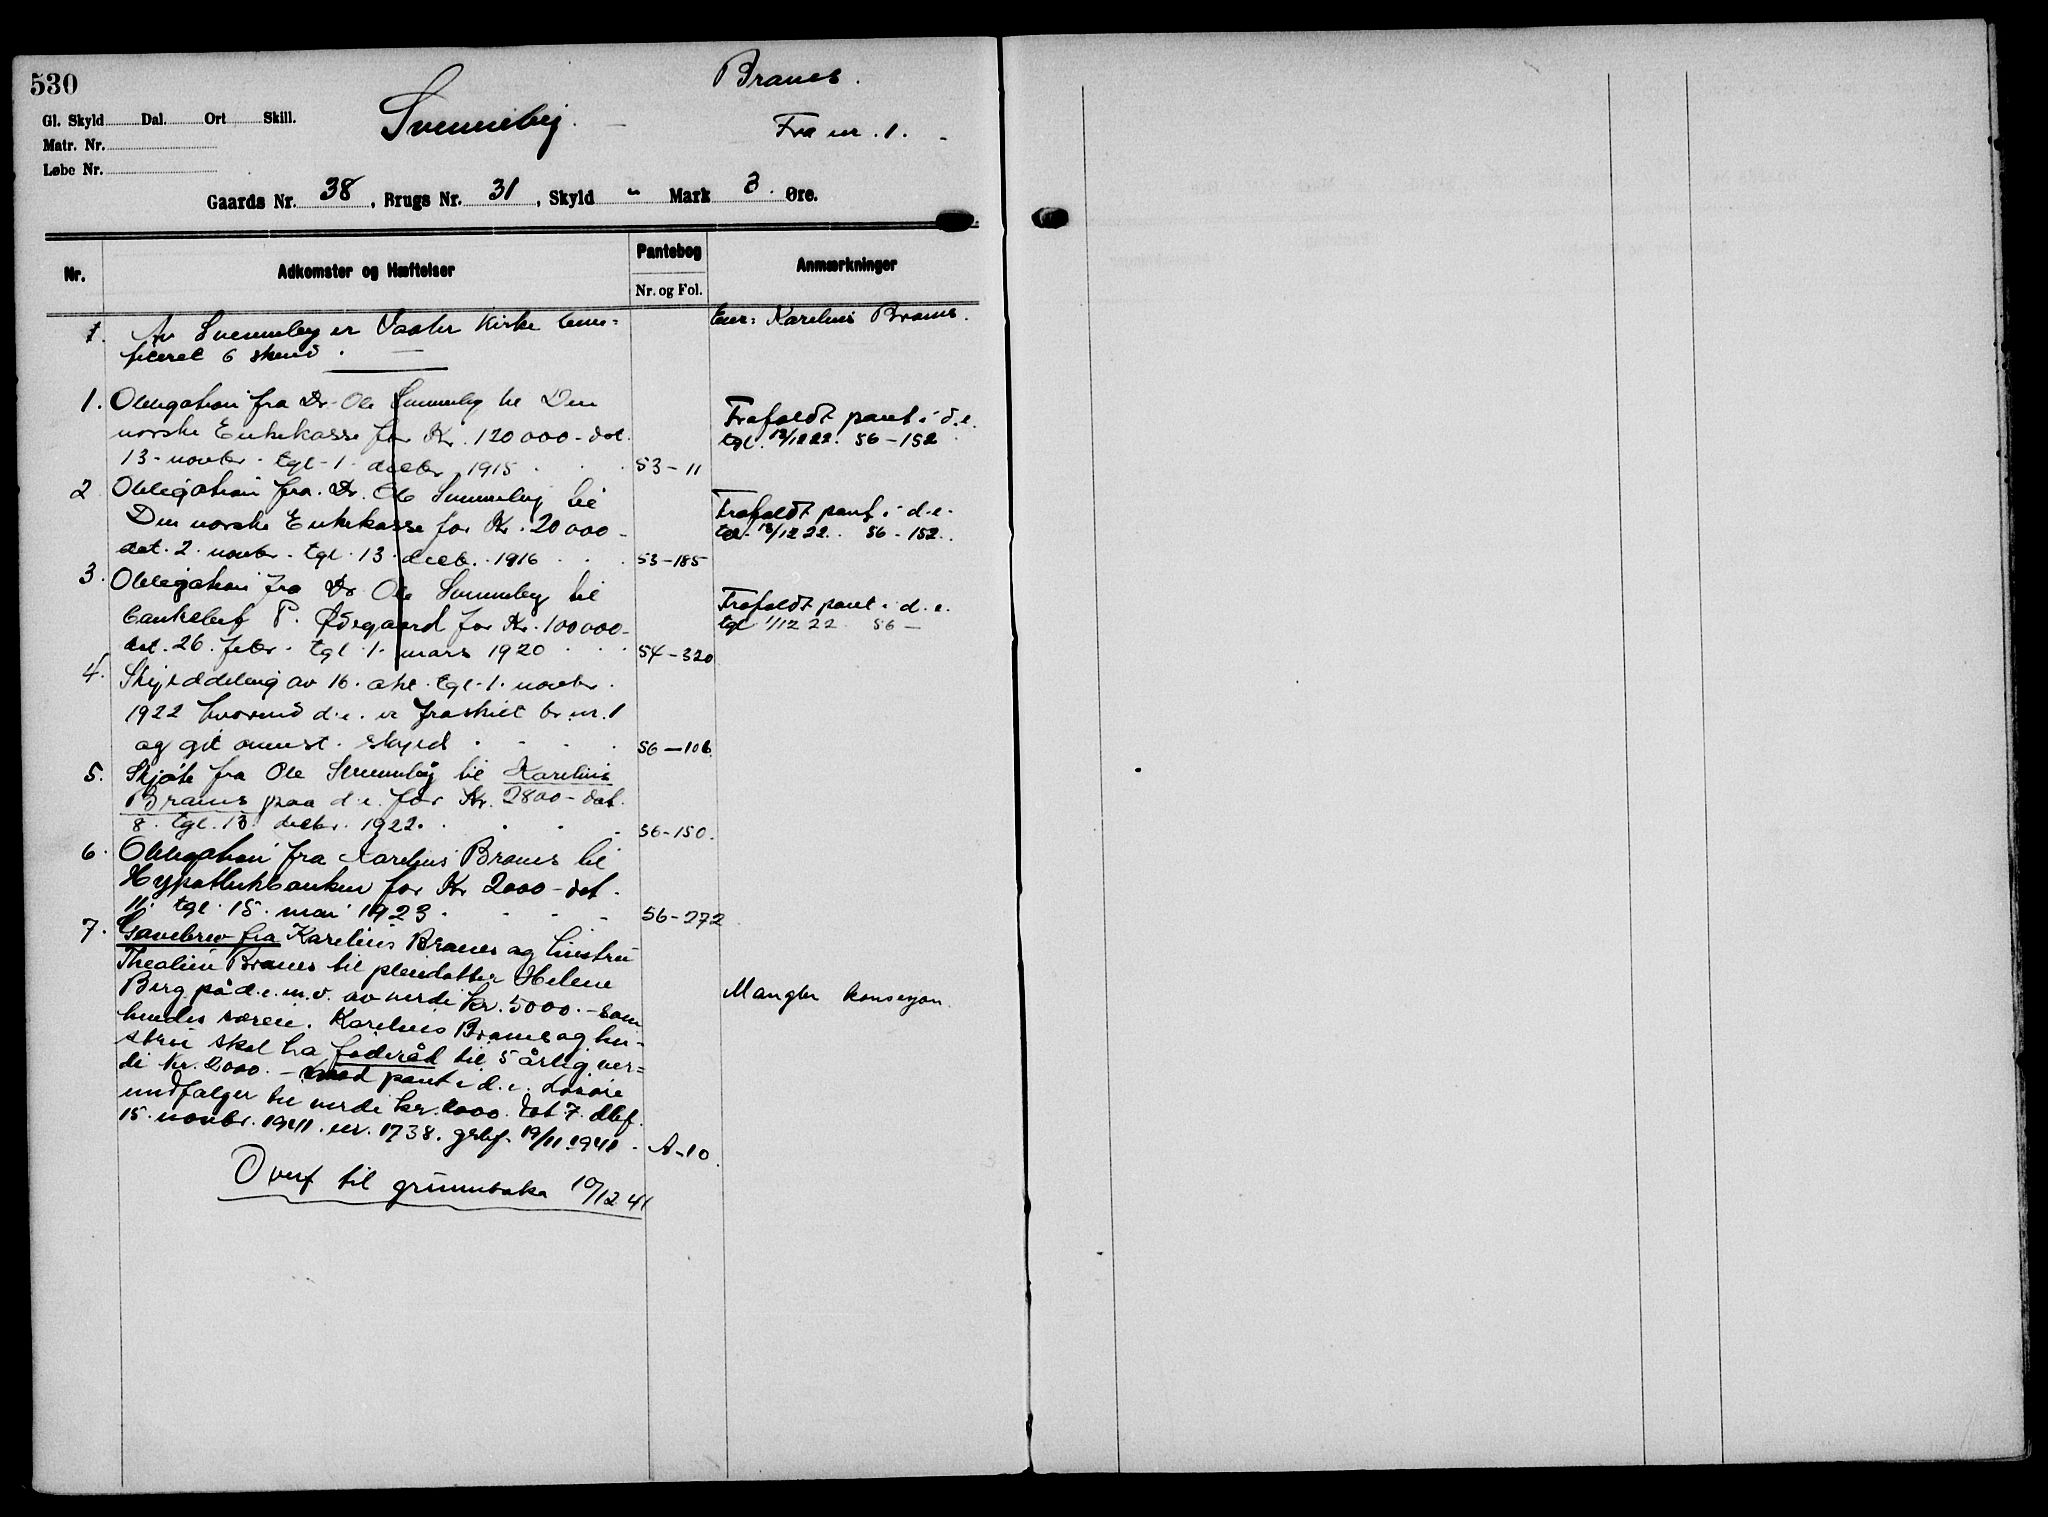 530
Branes.
Gl. Skyld Dal. Ort Skill.
Svenneby.
Fra nr. 1.
Matr. Nr.
Løbe Nr.
Gaards Nr. 38, Brugs Nr. 31, Skyld " Mark 3. Øre.
Nr. Adkomster og Hæftelser Pantebog Anmærkninger
Nr. og Fol.
1. Av Svenneby er Vaaler Kirke bene= Eier: Karelius Branes.
ficeret 6 skind.
1. Obligation fra Dr. Ole Svenneby til Den
norske Enkekasse for Kr. 120000 - dat.
13. novbr. tgl. 1. decbr. 1915 53-11
Frafaldt pant i d.e.
tgl. 13/12 22. 56-152
2. Obligation fra Dr. Ole Svenneby til
Den norske Enkekasse for Kr. 20000-
dat. 2. novbr. tgl. 13. decb. 1916 53-185
Frafaldt pant i d.e.
tgl. 13/12 22. 56-152.
3. Obligation fra Dr Ole Svenneby til
bankchef P. Ødegaard for Kr. 100000-
dat. 26. febr. tgl. 1. mars 1920 54-320
Frafaldt pant i d.e.
tgl 1/12 22 56-
4. Skylddeling av 16. okt. tgl. 1. novbr.
1922 hvorved d.e. er fraskilt br.nr. 1
og git ovenst. skyld 56-106
5. Skjøte fra Ole Svenneby til Karelius
Branes paa d.e. for Kr. 2800 - dat.
8. tgl. 13. decbr. 1922. 56-150.
6. Obligation fra Karelius Branes til
Hypothekbanken for Kr 2000 - dat.
11. tgl. 15. mai 1923. 56-272
7. Gavebrev fra Karelius Branes og hustru
Thealine Branes til pleiedatter Helene
Berg på d.e. m.v. av verdi kr. 5000.- som
hendes særeie. Karelius Branes og hu-
stru skal ha føderåd til 5 årlig ver=
di kr. 2000.- med pant i d.e. Løsøre
medfølger til verdi kr. 2000. Dat 7. dbf.
15. novbr. 1941. nr. 1738. 19/11 1941 - A-10.
Mangler konsesjon.
Overf til grunnboka 10/12 41